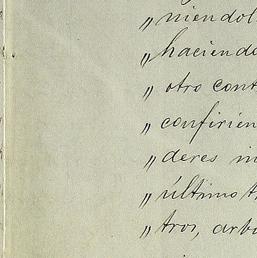 „ niendol
„ haciendo
„ otro cont
„ confirien
„ deres in
„ último t
„ tros, arbi